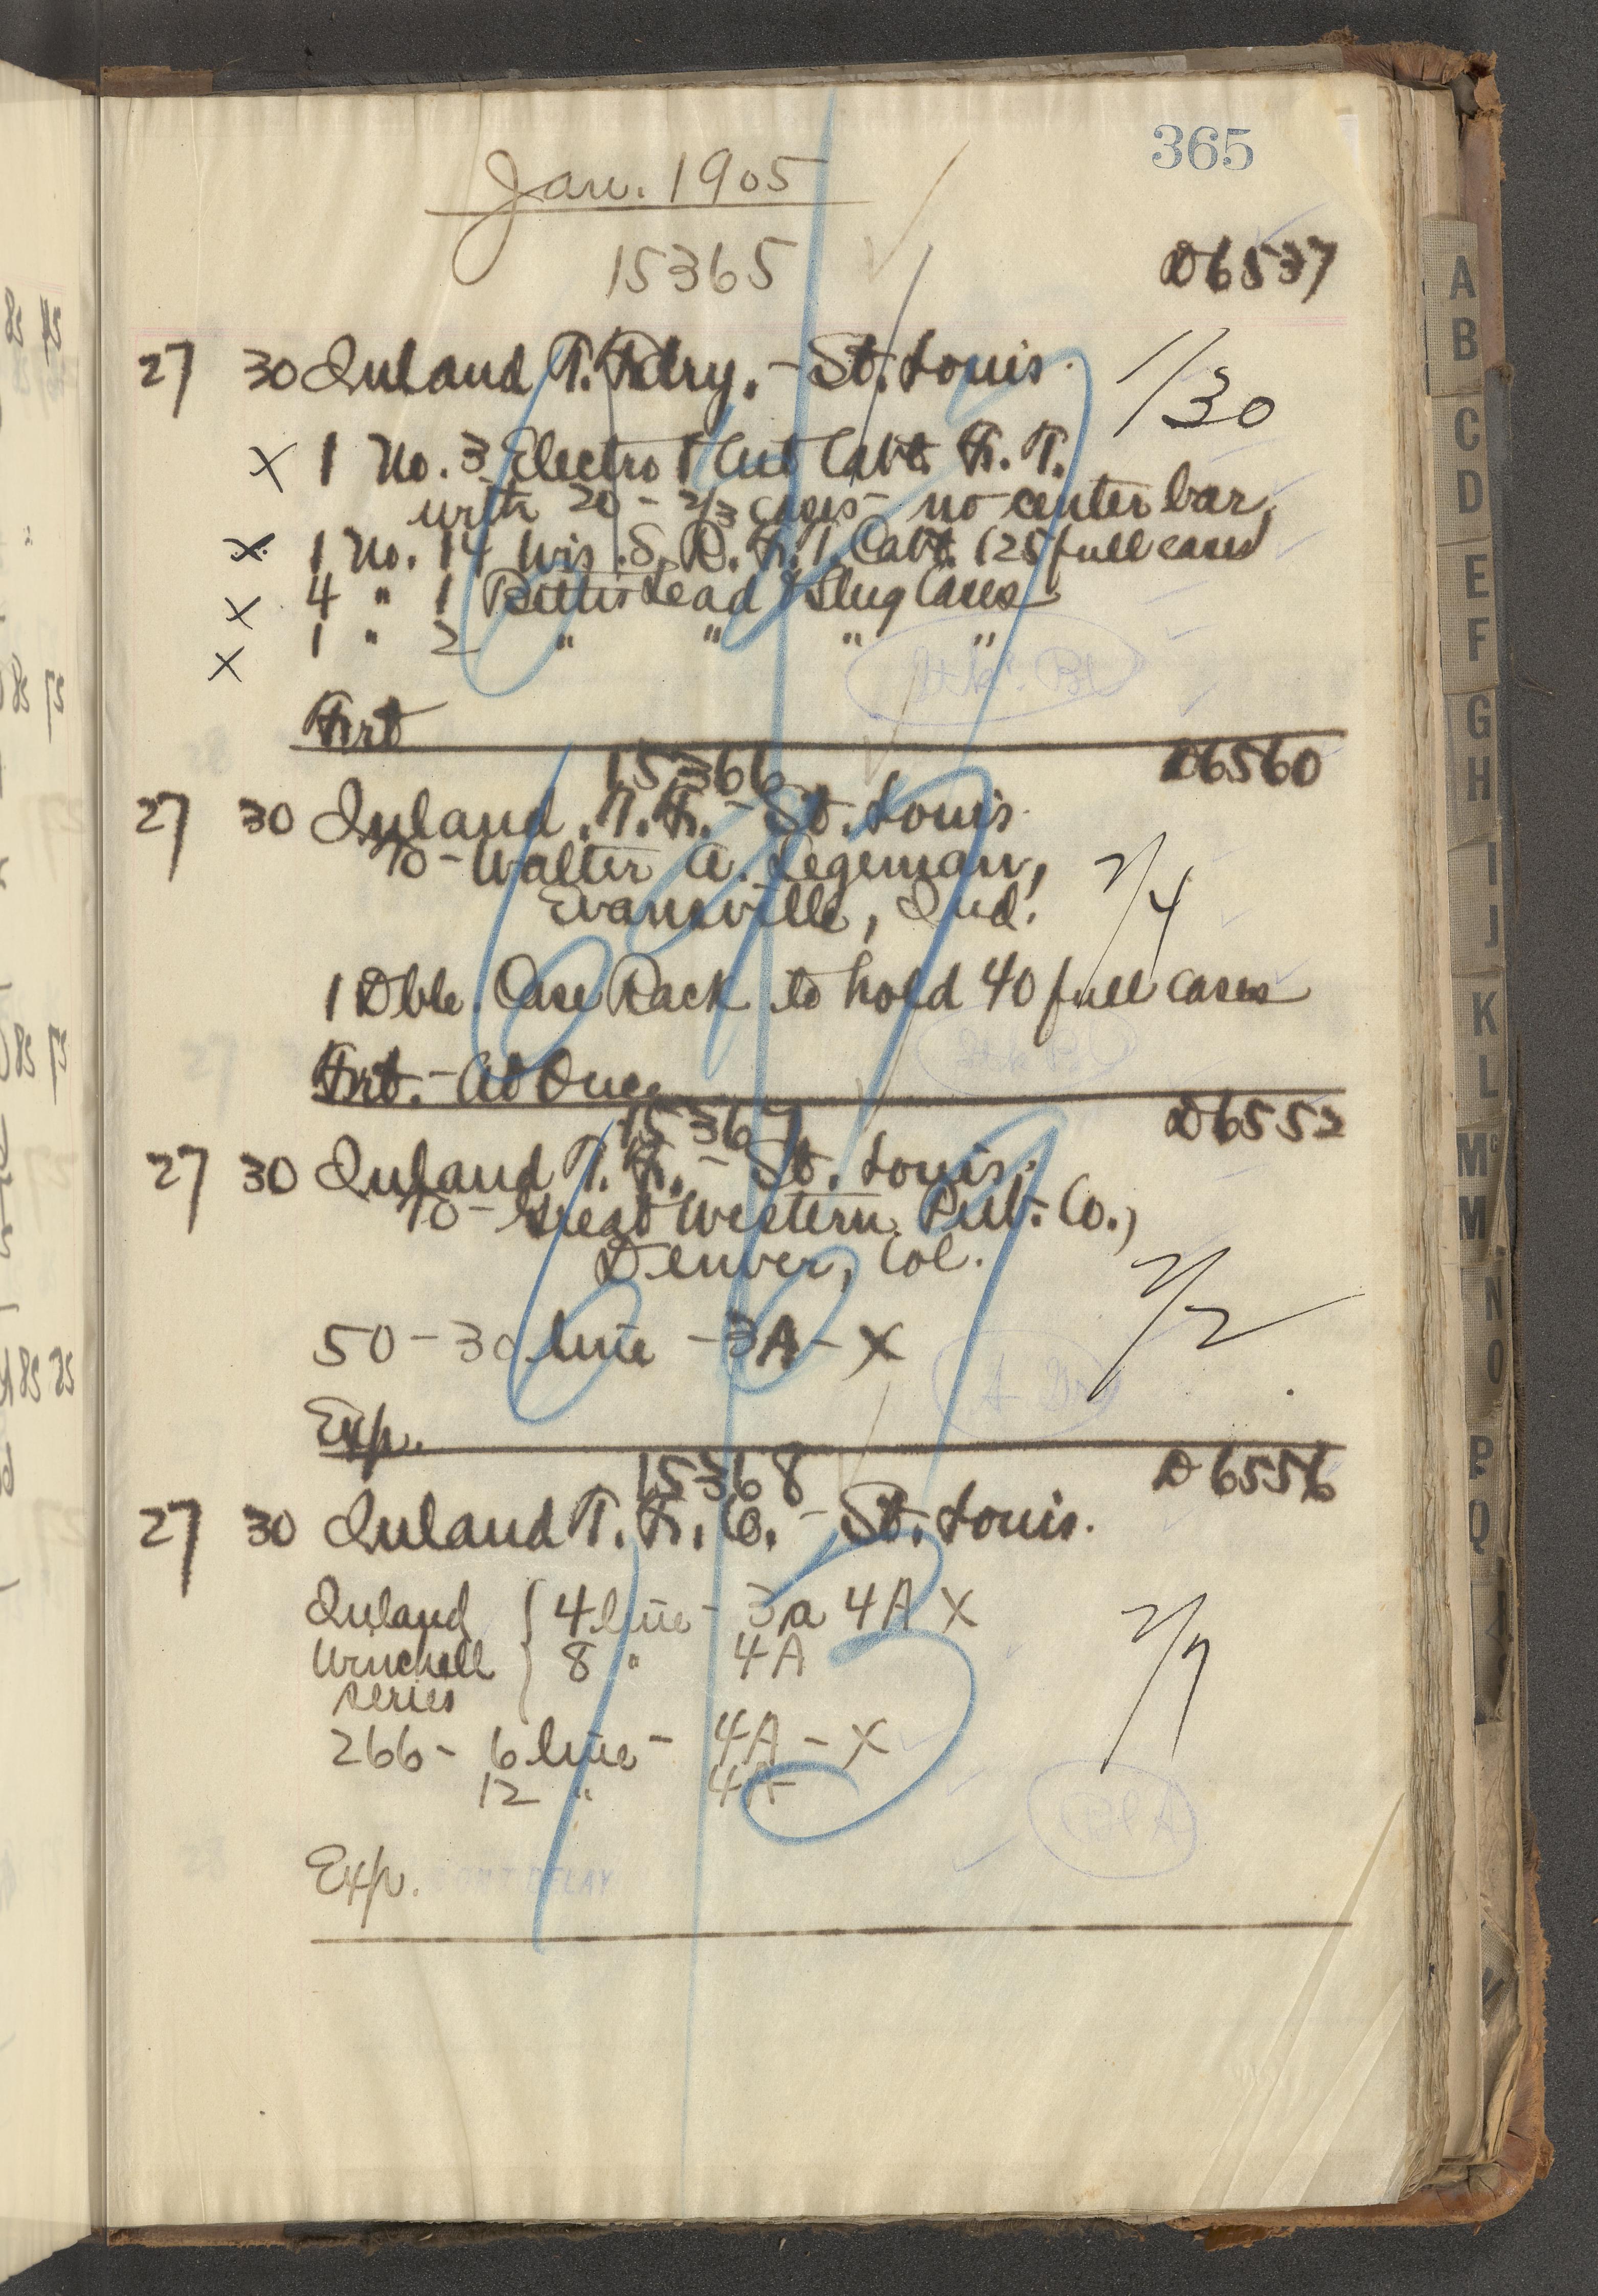 365
Jan. 1905
15365
D6537
27 30 Inland T. Fdry. - St. Louis.
1/30
X 1 No. 3 Electro & Cut Cabt. F. T.
with 20 - 2/3 cases - no center bar
X 1 No. 14 Wis. S. R. F. T. Cabt. (25 full cases)
X 4 " 1 Bettis Lead & Slug Cases
X 1 " 2 " " " "
Stk. Bl
Frt
15366
D6560
27 30 Inland T. F. - St. Louis.
To - Walter A. Legeman,
Evansville, Ind.
2/4
1 Dble. Case Rack to hold 40 full cases
Frt. - At Once
15367
D6552
27 30 Inland T. F. - St. Louis.
To - Great Western Pub. Co.,
Denver, Col.
2/2
50 - 30 line - 3A - X
Exp.
15368
D6556
27 30 Inland T. F. Co. - St. Louis.
Inland { 4 line - 3a 4A X
Winchell } 8 " 4A
series
2/7
266 - 6 line - 4A - X
12 " 4A -
Exp. DON'T DELAY
A
B
C
D
E
F
G
H
I
J
K
L
Mc
M
N
O
P
Q